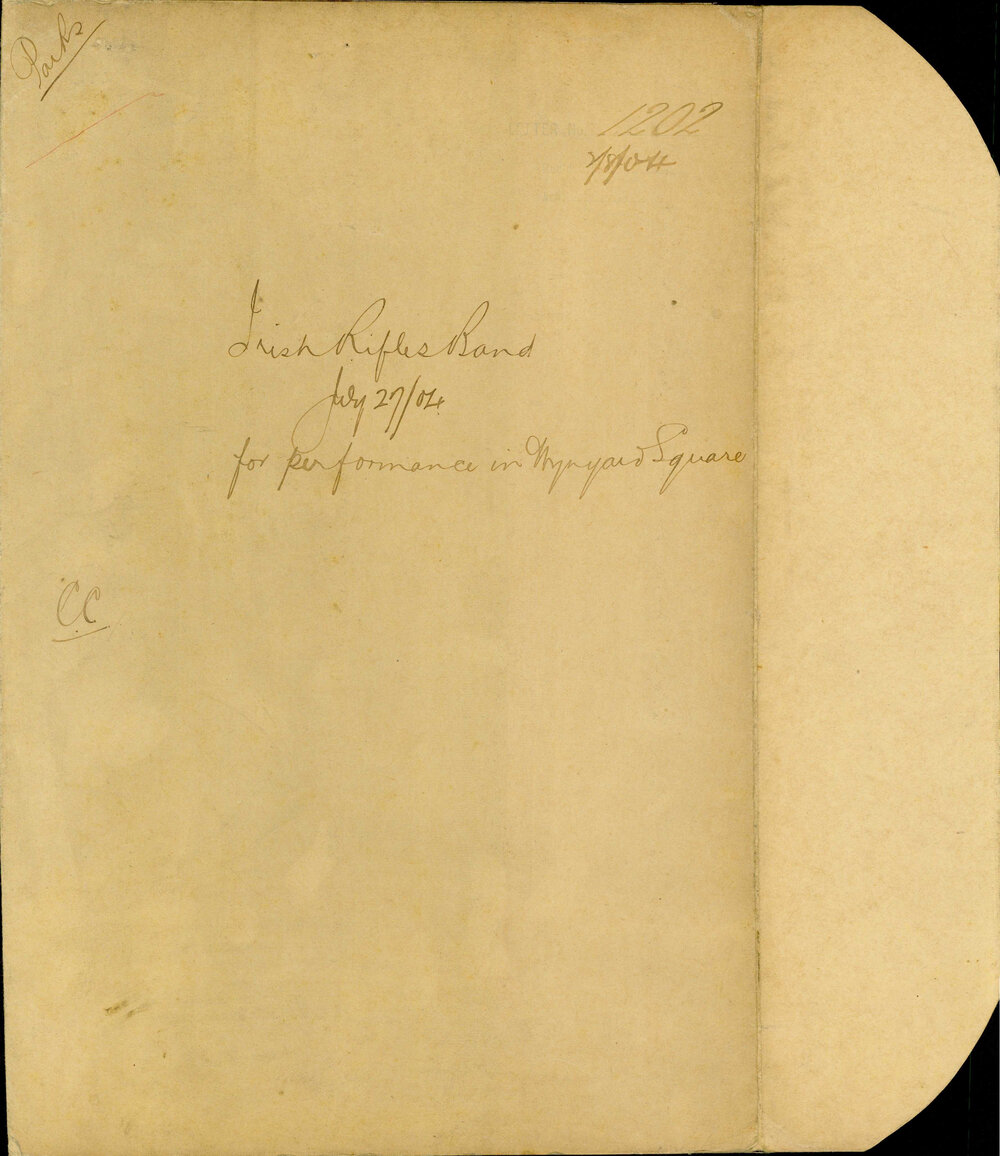 Parks
1202
2/8/04
Irish Rifles Band
July 27/04
for performance in Wynyard Square
C.C.